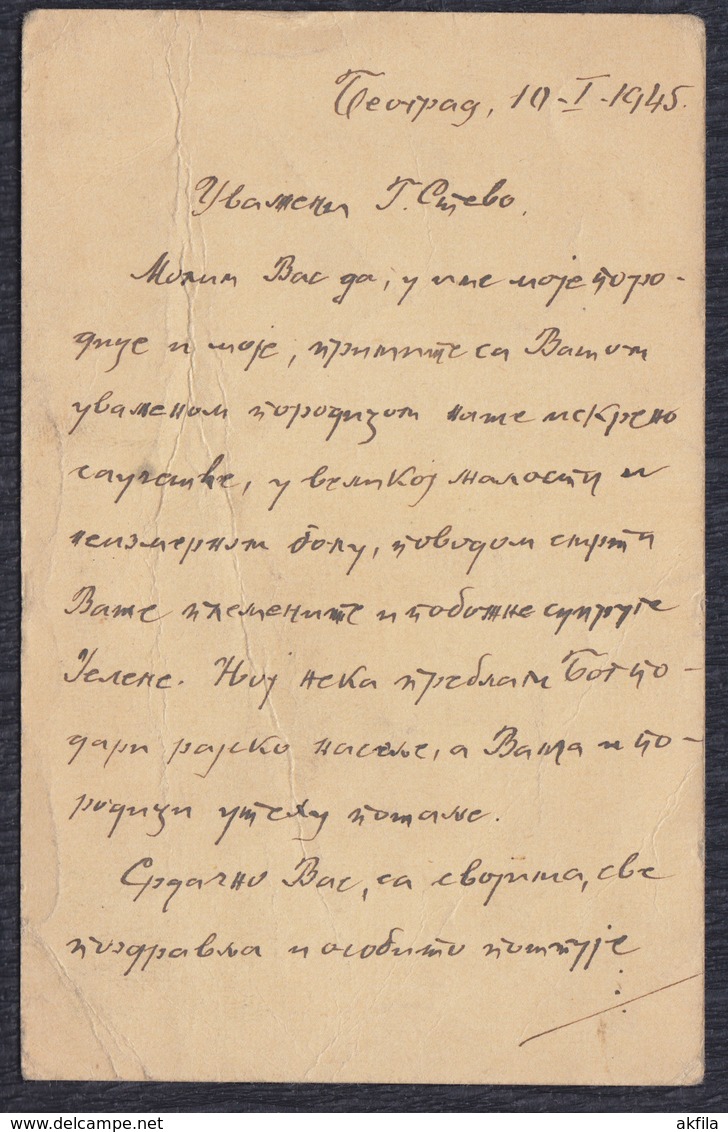 Београд, 10-I-1945.
Уважени Г. Стево,
Молим Вас да, у име моје поро-
дице и моје, примите са Вашом
уваженом породицом наше искрено
саучешће, у великој жалости и
неизмерном болу, поводом смрти
Ваше племените и побожне супруге
Јелене. Њој нека преблаги Бог по-
дари рајско насеље, а Вама и по-
родици утеху пошаље.
Срдачно Вас, са својима, све
поздравља и особито поштује
akfila